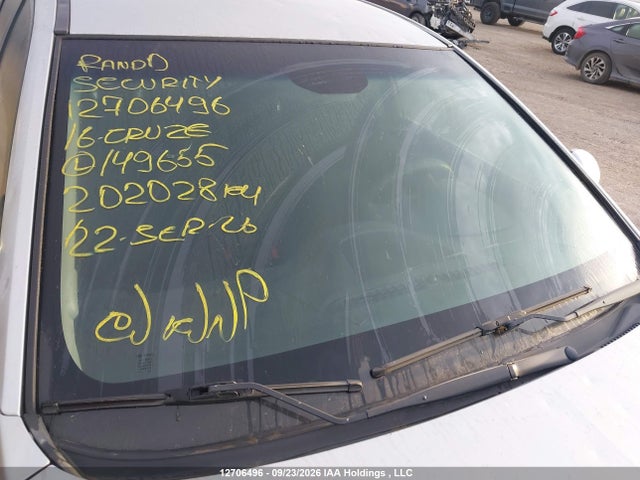 RANDD
SECURITY
12706496
16-CRUZE
149655
202028KM
22-SEP-26
12706496 - 09/23/2026 IAA Holdings , LLC